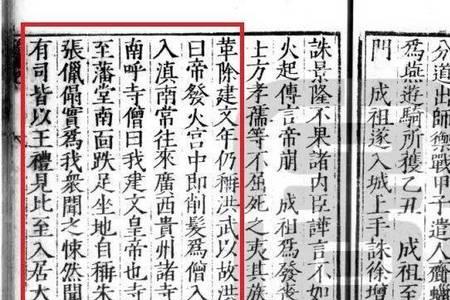 分道出師禦戰甲子遣人齎蠟
為燕遊騎所獲乙丑 成祖至
門 成祖遂入城上手誅徐增
誅景隆不果諸內臣譁言不如
火起傳言帝崩 成祖爲發喪
上方孝孺等不屈死之夷其族
革除建文年仍稱洪武以故洪
曰帝發火宮中即削髮爲僧入
入滇南常往來廣西貴州諸寺
南呼寺僧曰我建文皇帝也寺
至藩堂南面趺足坐地自稱朱
張實爲我衆聞之悚然聞
有司皆以王禮見比至入居大